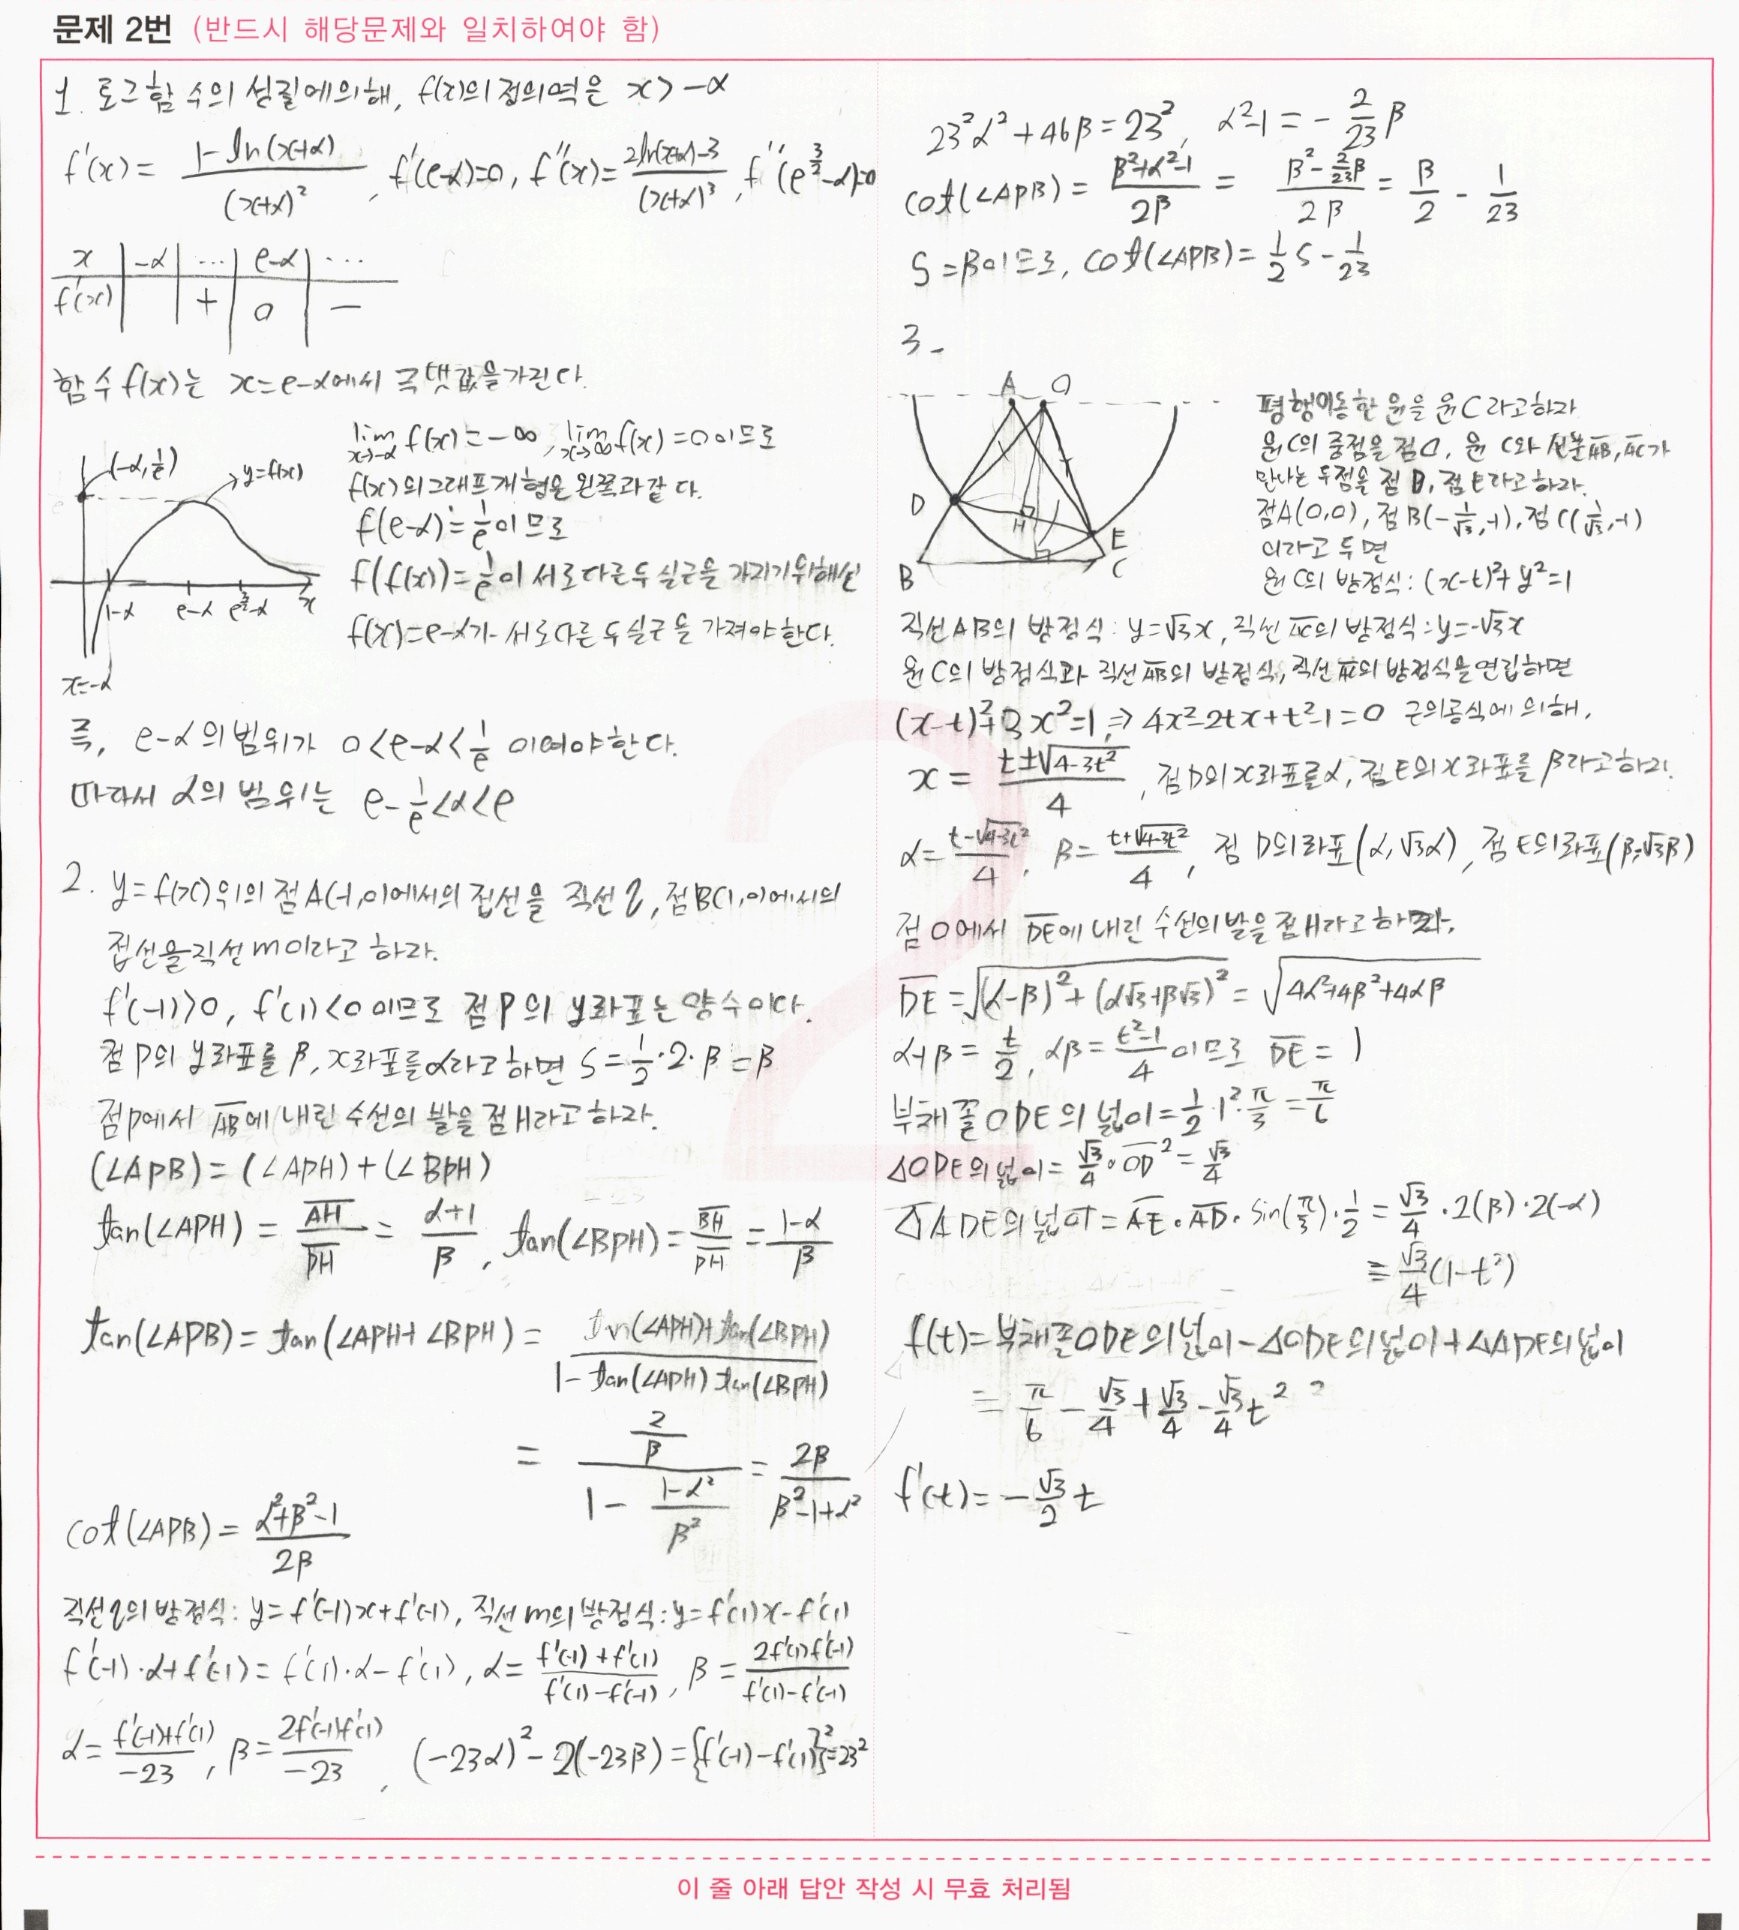 문제 2번 (반드시 해당문제와 일치하여야 함)
1. 로그함수의 성질에의해, f(x)의 정의역은 x > -α
f'(x) = (1-ln(x+α))/(x+α)², f'(e-α)=0, f''(x)=(2ln(x+α)-3)/(x+α)³, f''(e^(3/2)-α)=0
x | -α | ... | e-α | ...
f'(x) | | + | 0 | -
함수 f(x)는 x=e-α에서 극댓값을가진다.
(-α, 1/e)
y=f(x)
1-α e-α e^(3/2)-α x
x=-α
lim x→-α f(x) = -∞, lim x→∞ f(x) = 0이므로
f(x)의그래프개형은왼쪽과같다.
f(e-α) = 1/e이므로
f(f(x)) = 1/e이 서로다른두실근을 가지기위해선
f(x)=e-α가 서로다른두실근을 가져야한다.
즉, e-α의범위가 0<e-α<1/e 이여야한다.
따라서 α의 범위는 e-1/e<α<e
2. y=f(x)위의 점A(-1,0)에서의접선을 직선 l, 점B(1,0)에서의
접선을직선 m이라고 하라.
f'(-1)>0, f'(1)<0이므로 점P의 y좌표는양수이다.
점P의 y좌표를 β, x좌표를α라고하면 S=1/2·2·β=β
점P에서 AB에 내린 수선의 발을 점H라고하라.
(∠APB) = (∠APH) + (∠BPH)
tan(∠APH) = AH/PH = (α+1)/β, tan(∠BPH) = BH/PH = (1-α)/β
tan(∠APB) = tan(∠APH+∠BPH) = (tan(∠APH)+tan(∠BPH))/(1-tan(∠APH)tan(∠BPH))
= (2/β)/(1-(1-α²)/β²) = 2β/(β²-1+α²)
cot(∠APB) = (α²+β²-1)/2β
직선l의방정식: y=f'(-1)x+f'(-1), 직선m의방정식: y=f'(1)x-f'(1)
f'(-1)·α+f'(-1) = f'(1)·α-f'(1), α=(f'(-1)+f'(1))/(f'(1)-f'(-1)), β=2f'(1)f'(-1)/(f'(1)-f'(-1))
α=(f'(-1)+f'(1))/-23, β=2f'(-1)f'(1)/-23, (-23α)²-2(-23β)={f'(-1)-f'(1)}²=23²
23²α²+46β=23², α²-1=-2/23 β
cot(∠APB) = (β²+α²-1)/2β = (β²-2/23β)/2β = β/2 - 1/23
S=β이므로, cot(∠APB) = 1/2 S - 1/23
3-
A O
D
H
E
B C
평행이동한 원을 원C라고하자
원C의 중점을 점O, 원 C와 선분AB, AC가
만나는 두점을 점 D, 점 E라고하라.
점A(0,0), 점B(-1/√3,-1), 점C(1/√3,-1)
이라고 두면
원C의 방정식: (x-t)²+y²=1
직선AB의 방정식: y=√3x, 직선 AC의 방정식: y=-√3x
원C의 방정식과 직선AB의 방정식, 직선AC의 방정식을연립하면
(x-t)²+3x²=1, ⇒ 4x²-2tx+t²-1=0 근의공식에의해,
x = (t±√(4-3t²))/4, 점D의x좌표를α, 점E의 x좌표를 β라고하자.
α=(t-√(4-3t²))/4, β=(t+√(4-3t²))/4, 점 D의좌표(α,√3α), 점 E의좌표(β,-√3β)
점O에서 DE에 내린 수선의발을점H라고하자.
DE=√((α-β)²+(α√3+β√3)²) = √(4α²+4β²+4αβ)
α+β=t/2, αβ=(t²-1)/4이므로 DE=1
부채꼴ODE의넓이=1/2·1²·π/3=π/6
△ODE의넓이=√3/4·OD²=√3/4
△ADE의넓이=AE·AD·sin(π/3)·1/2=√3/4·2(β)·2(-α)
=√3/4(1-t²)
f(t)=부채꼴ODE의넓이-△ODE의넓이+△ADE의넓이
= π/6 - √3/4 + √3/4 - √3/4 t²
f'(t)=-√3/2 t
이 줄 아래 답안 작성 시 무효 처리됨